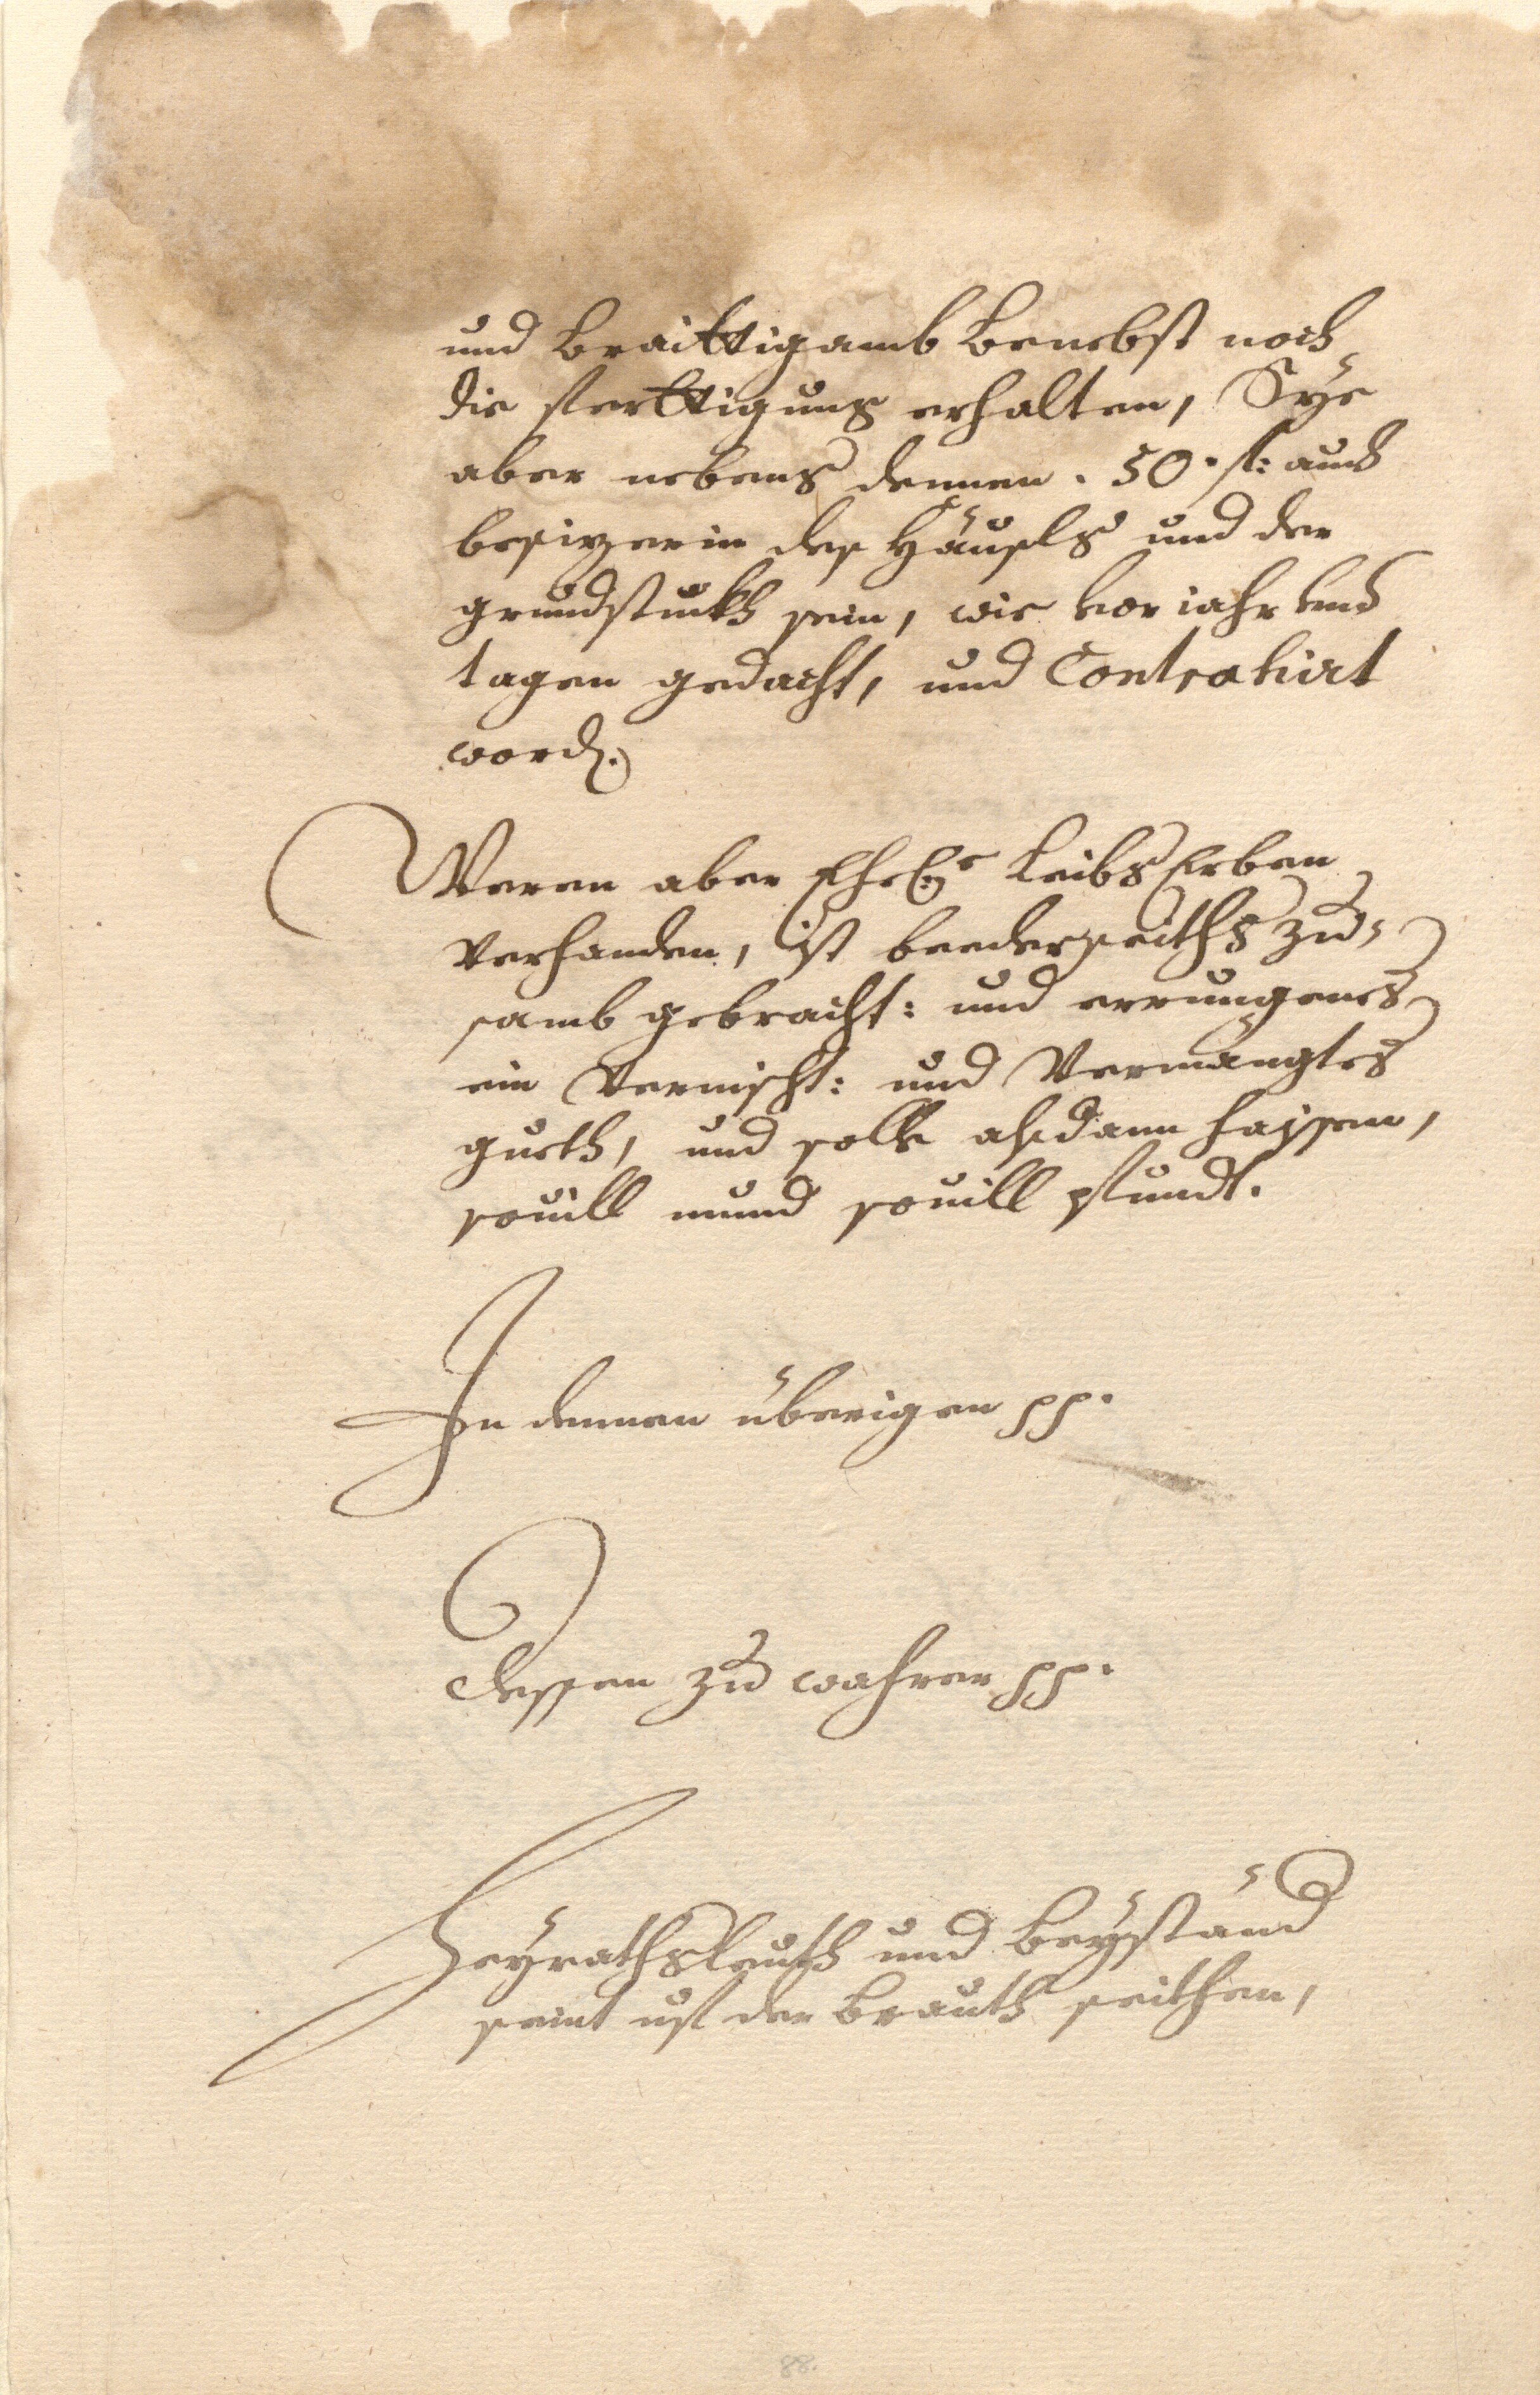 und Braittigamb benebst noch
die ferttigung erhalten, Sÿe
aber nebens dennen . 50 . f: auch
besizerin des Häusls und der
grundstuckh sein, wie vor iahr und
tagen gedacht, und Contrahirt
word.
Weren aber Ehel: Leibs Erben
verhanden, ist beederseiths zu,
samb gebracht: und errungenes
ein vermischt: und vermängtes
gueth, und solle alsdann haissen,
souill mund souill pfundt.
In dennen überigen pp.
dessen zu wahrer pp.
Heÿrathsleuth und beÿständ
seint uf der brauth seithen,
88.